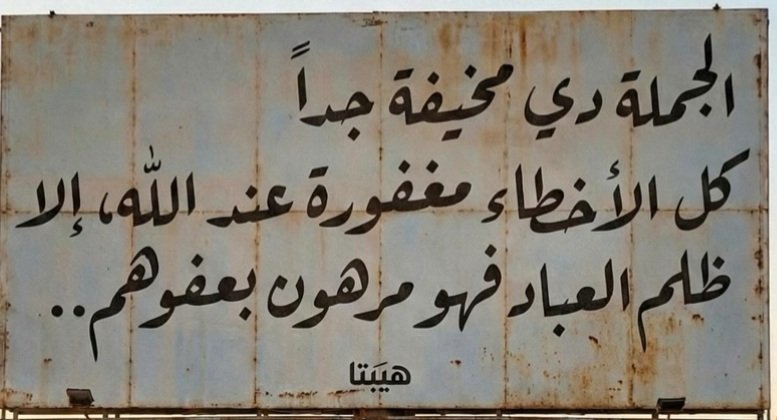 الجملة دي مخيفة جداً
كل الأخطاء مغفورة عند الله، إلا
ظلم العباد فهو مرهون بعفوهم..
هيبَتا